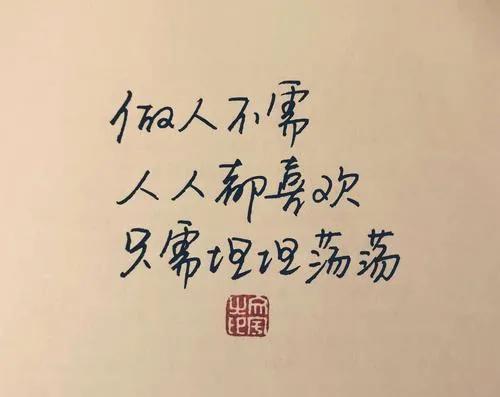 做人不需
人人都喜欢
只需坦坦荡荡